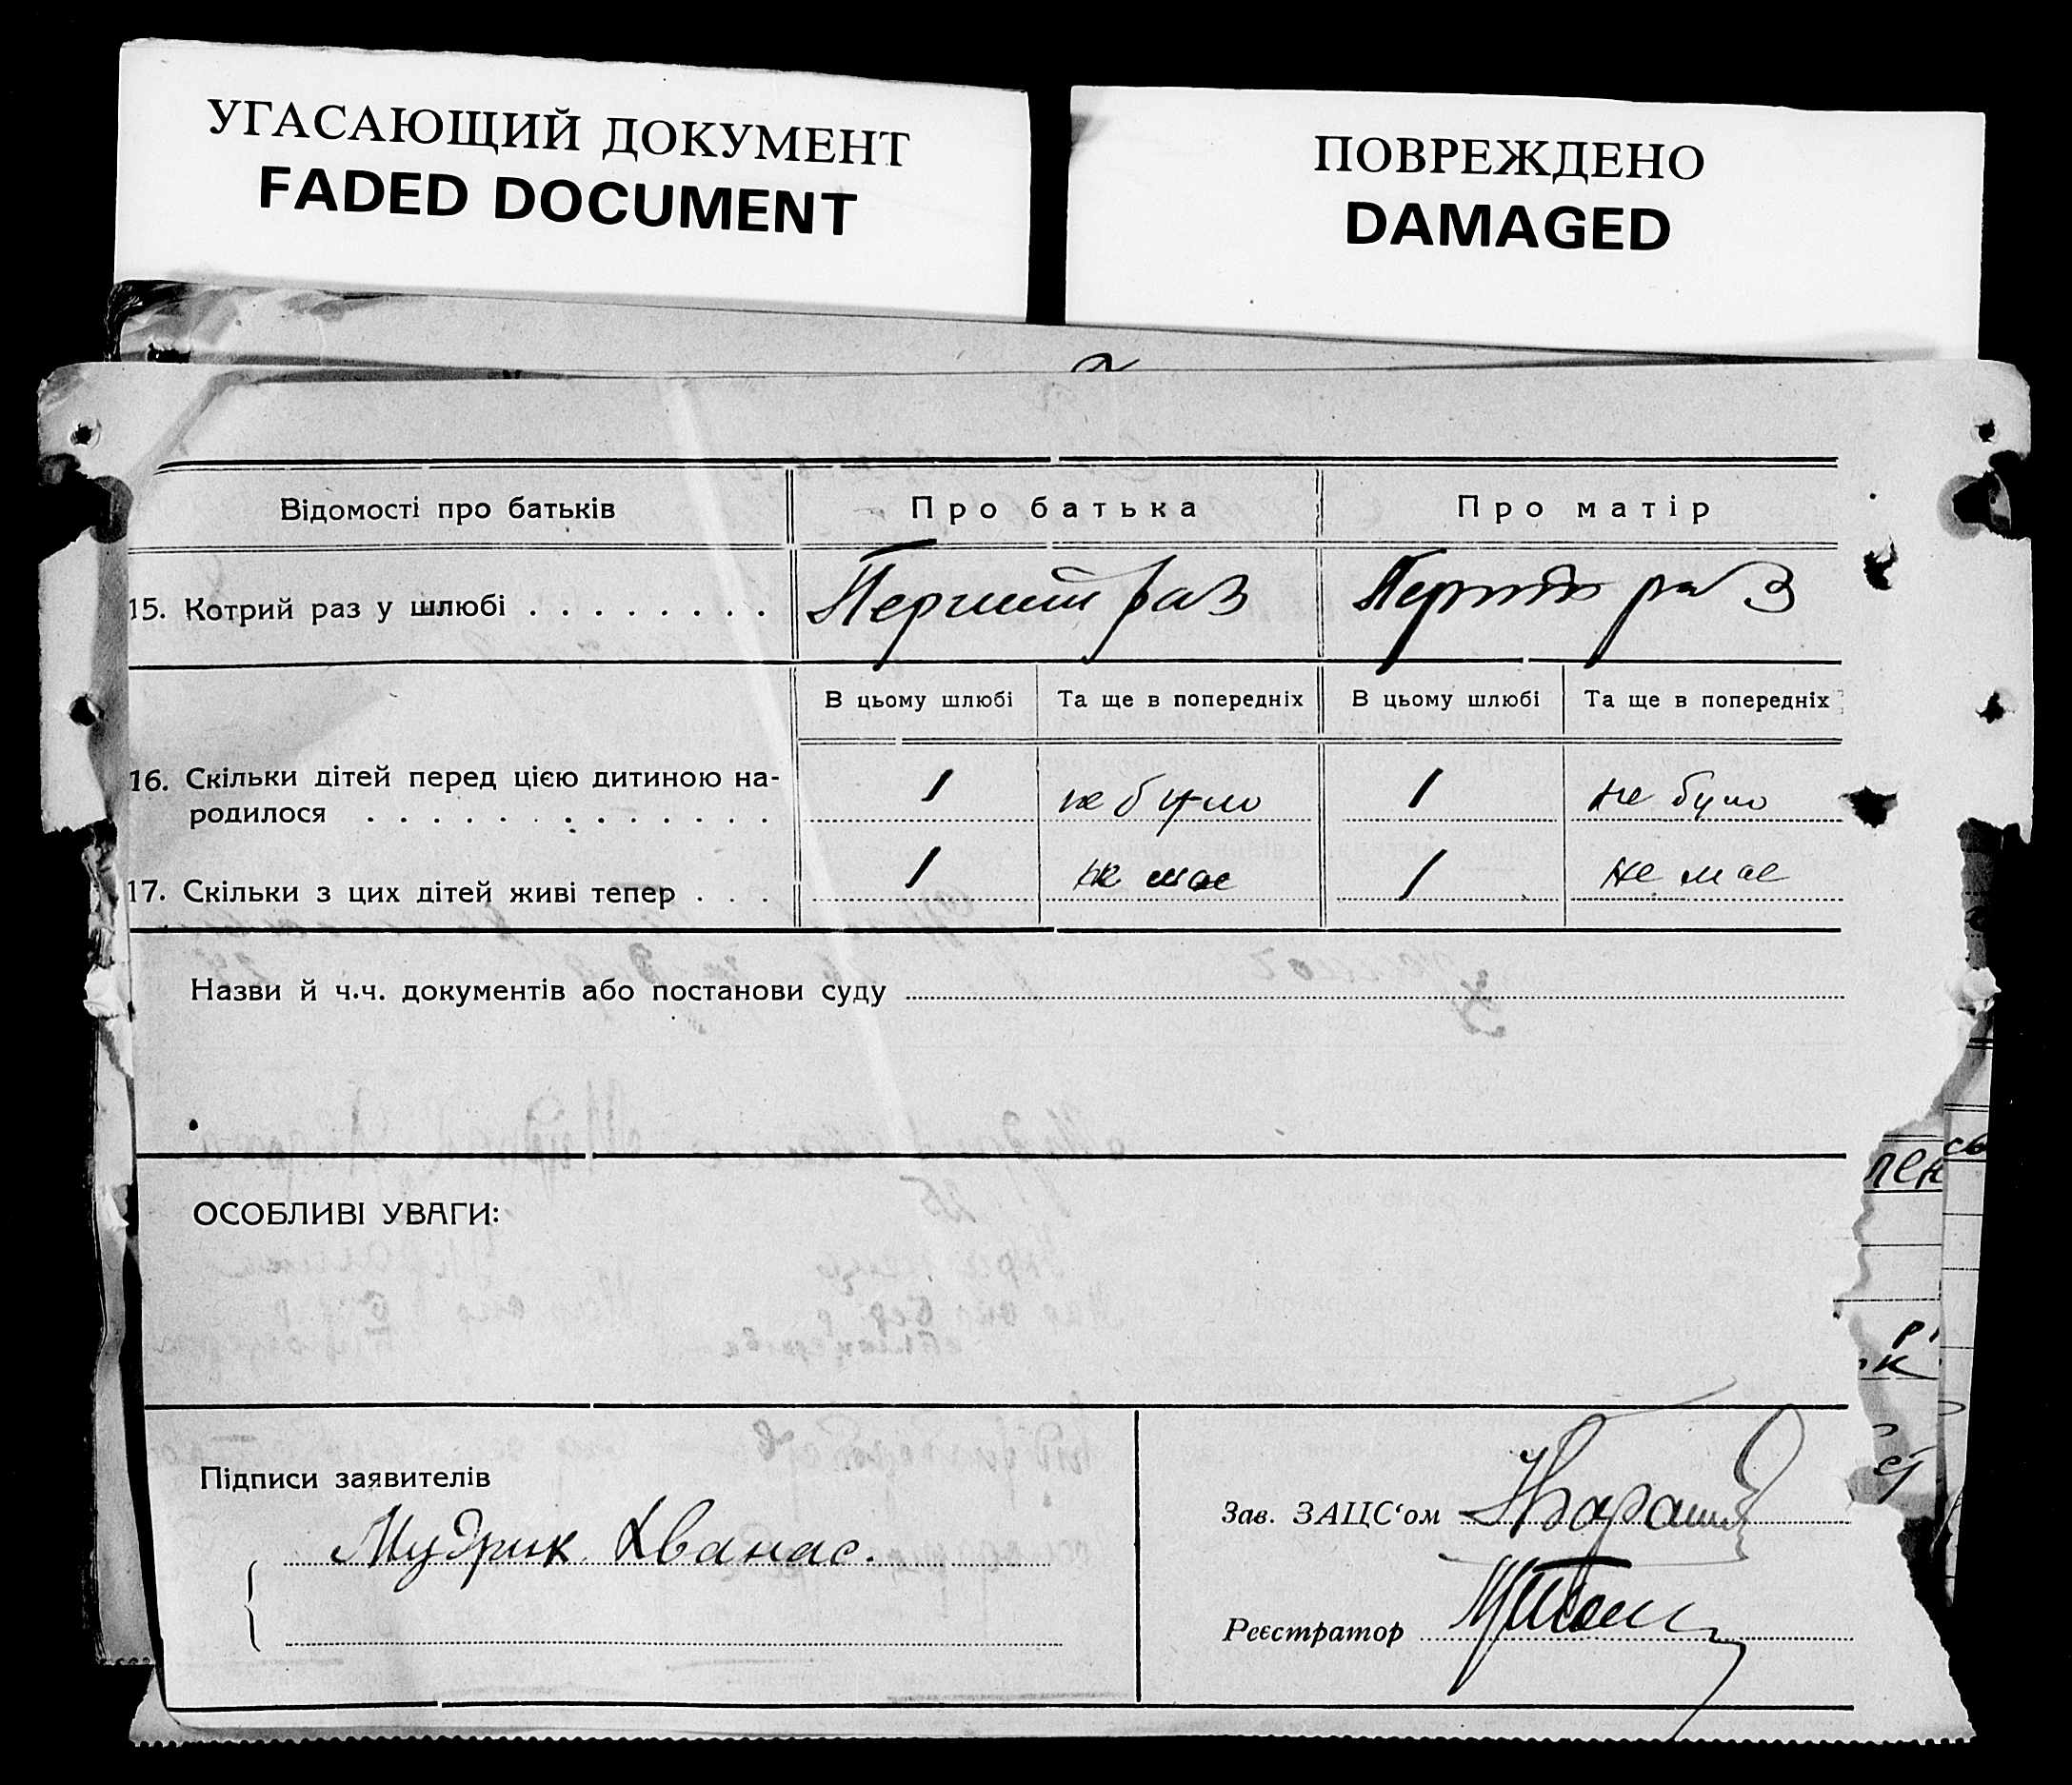 УГАСАЮЩИЙ ДОКУМЕНТ
FADED DOCUMENT
ПОВРЕЖДЕНО
DAMAGED
Відомості про батьків Про батька Про матір
15. Котрий раз у шлюбі . . . . . . . . Перший раз раз
В цьому шлюбі Та ще в попередніх В цьому шлюбі Та ще в попередніх
16. Скільки дітей перед цією дитиною на-
родилося . . . . . . . . . . . . . . 1 не було 1 не було
17. Скільки з цих дітей живі тепер . . . 1 не має 1 не має
Назви й ч.ч. документів або постанови суду
ОСОБЛИВІ УВАГИ:
Підписи заявителів
Мудрик Хванас.
Зав. ЗАЦС‘ом
Реєстратор